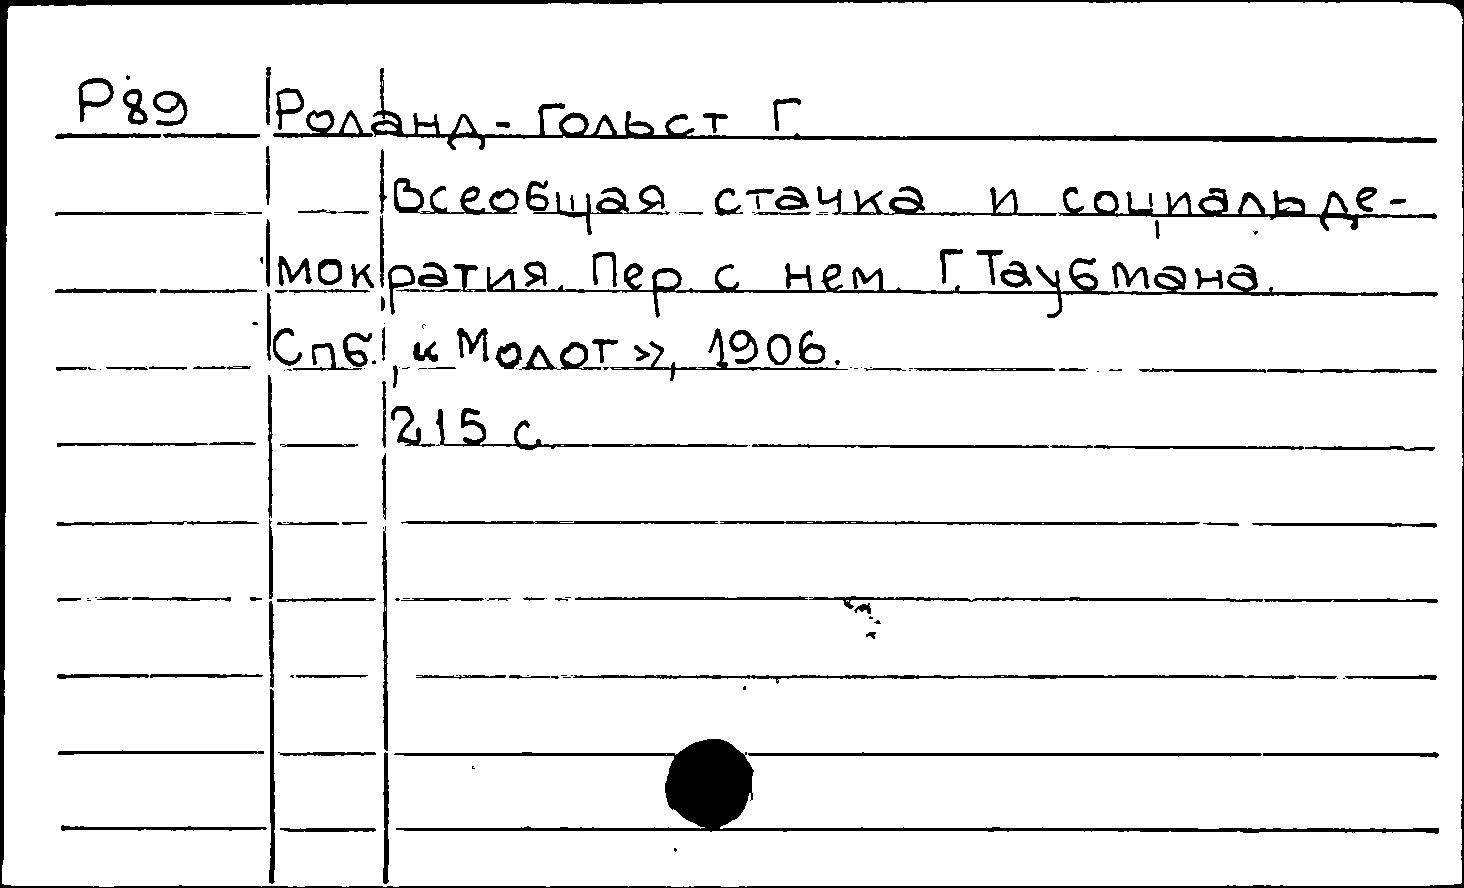 Р89 Роланд-Гольст Г.
Всеобщая стачка и социальде-
мократия. Пер. с нем. Г. Таубмана.
Спб., «Молот», 1906.
215 с.